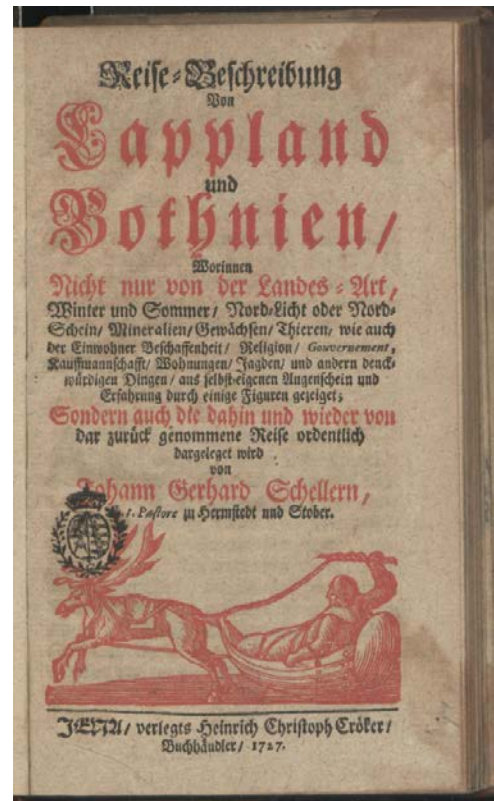 Reise-Beschreibung
Von
Lappland
und
Bothnien/
Worinnen
Nicht nur von der Landes-Art,
Winter und Sommer/ Nord-Licht oder Nord-
Schein/ Mineralien/ Gewächsen/ Thieren/ wie auch
der Einwohner Beschaffenheit/ Religion/ Gouvernement,
Kauffmannschafft/ Wohnungen/ Jagden/ und andern denck-
würdigen Dingen/ aus selbst-eigenen Augenschein und
Erfahrung durch einige Figuren gezeiget;
Sondern auch die dahin und wieder von
dar zurück genommene Reise ordentlich
dargeleget wird
von
Johann Gerhard Schellern,
Pastore zu Hermstedt und Stober.
JENA/ verlegts Heinrich Christoph Cröker/
Buchhändler/ 1727.